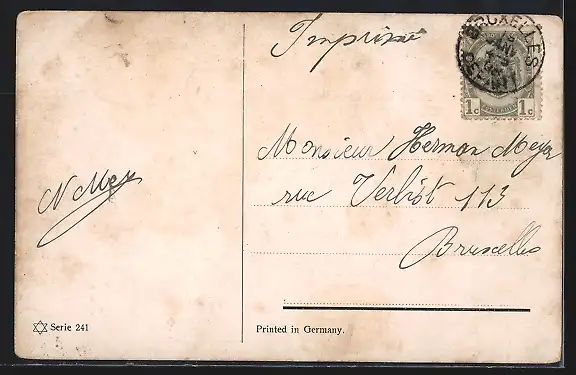 Imprimé
BRUXELLES
1c 1c
Monsieur Herman Meyer
rue Verbist 113
Bruxelles
N Mey
Serie 241
Printed in Germany.